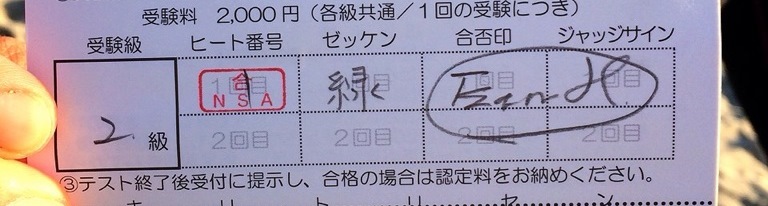 受験料 2,000円(各級共通/1回の受験につき)
受験級 ヒート番号 ゼッケン 合否印 ジャッジサイン
1回目 合 NSA 緑 1回目 1回目
2級 2回目 2回目 2回目 2回目
③テスト終了後受付に提示し、合格の場合は認定料をお納めください。